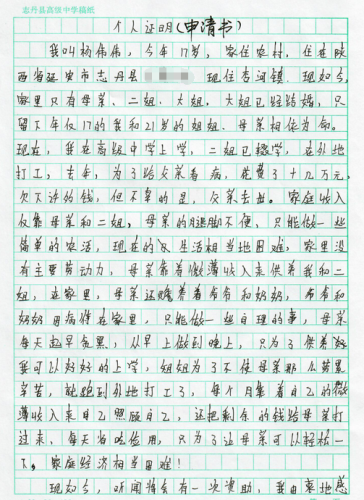 志丹县高级中学稿纸
个人证明(申请书)
我叫杨伟伟，今年17岁，家住农村，住在陕
西省延安市志丹县 现住杏河镇，现如今，
家里只有母亲、二姐、大姐，大姐已经结婚，只
留下年仅17的我和21岁的姐姐，母亲相依为命。
现在，我在高级中学上学，二姐已辍学，在外地
打工，去年，为了给父亲看病，花费了十几万元，
欠下许多的钱，但不幸的是，父亲去世。家庭收入
仅靠母亲和二姐，母亲的腿脚不便，只能做一些
简单的农活，现在的 生活相当地困难，家里没
有主要劳动力，母亲靠着微薄收入来供养我和二
姐，在家里，母亲还赡养着爷爷和奶奶，爷爷和
奶奶因病住在家里，只能做一些自理的事，母亲
每天起早贪黑，从早上做到晚上，只为了供养
我可以好好的上学，姐姐为了不使母亲那么劳累
辛苦，就跑到外地打工了，每个月靠着自己的微
薄收入来自己照顾自己，还把剩余的钱给母亲打
过来，每天省吃俭用，只为了让母亲可以轻松一
下，家庭经济相当困难！
现如今，听闻将会有一次资助，我由衷地感